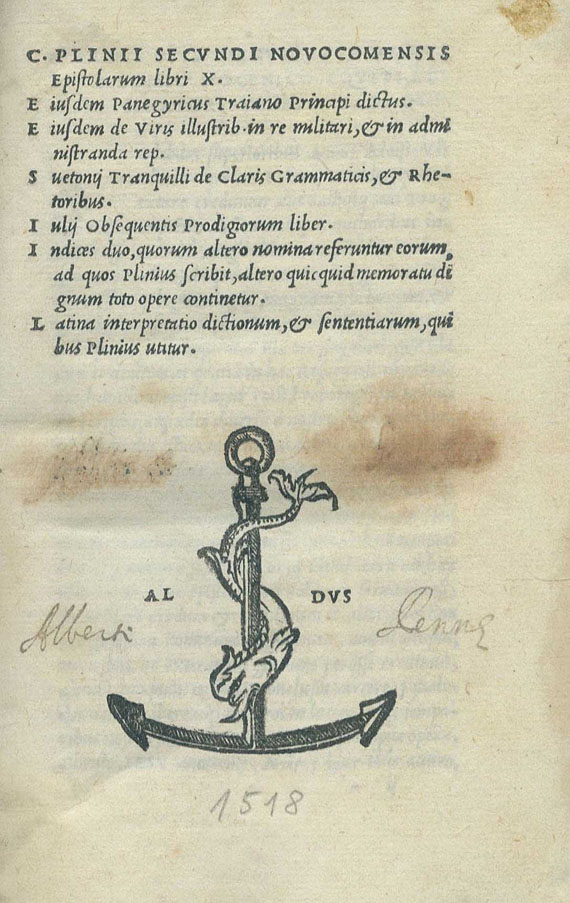 C. PLINII SECVNDI NOVOCOMENSIS
Epistolarum libri X.
E iusdem Panegyricus Traiano Principi dictus.
E iusdem de Viris illustrib. in re militari, & in admi
nistranda rep.
S uetonij Tranquilli de Claris Grammaticis, & Rhe-
toribus.
I ulij Obsequentis Prodigiorum liber.
I ndices duo, quorum altero nomina referuntur eorum,
ad quos Plinius scribit, altero quicquid memoratu di
gnum toto opere continetur.
L atina interpretatio dictionum, & sententiarum, qui
bus Plinius utitur.
AL DVS
Alberk
1518